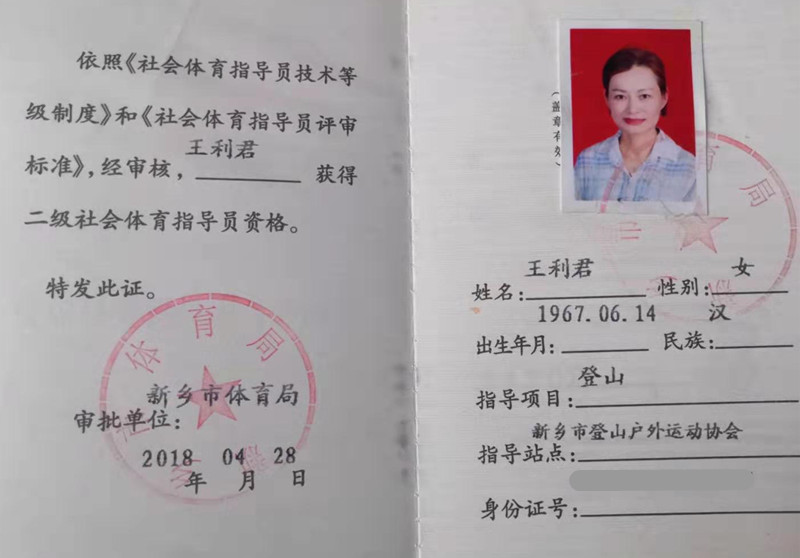 依照《社会体育指导员技术等
级制度》和《社会体育指导员评审
标准》，经审核，王利君 获得
二级社会体育指导员资格。
特发此证。
体育局
新乡市体育局
审批单位：
2018 04 28
年 月 日
（盖章有效）
育局
市
姓名：王利君 性别：女
出生年月：1967.06.14 民族：汉
指导项目：登山
指导站点：新乡市登山户外运动协会
身份证号：